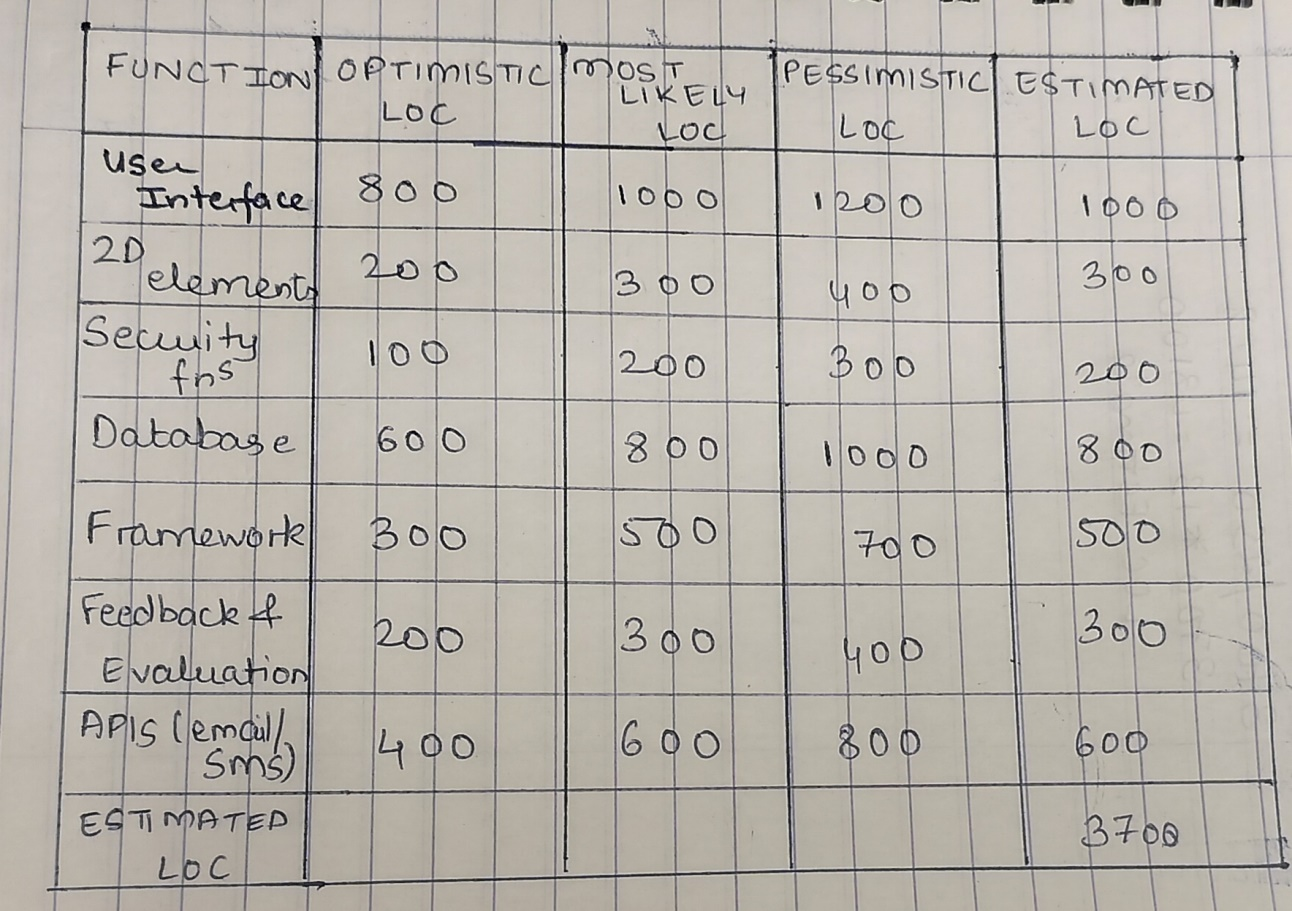 FUNCTION OPTIMISTIC LOC MOST LIKELY LOC PESSIMISTIC LOC ESTIMATED LOC
User Interface 800 1000 1200 1000
2D elements 200 300 400 300
Security fns 100 200 300 200
Database 600 800 1000 800
Framework 300 500 700 500
Feedback & Evaluation 200 300 400 300
APIS (email/ Sms) 400 600 800 600
ESTIMATED LOC 3700